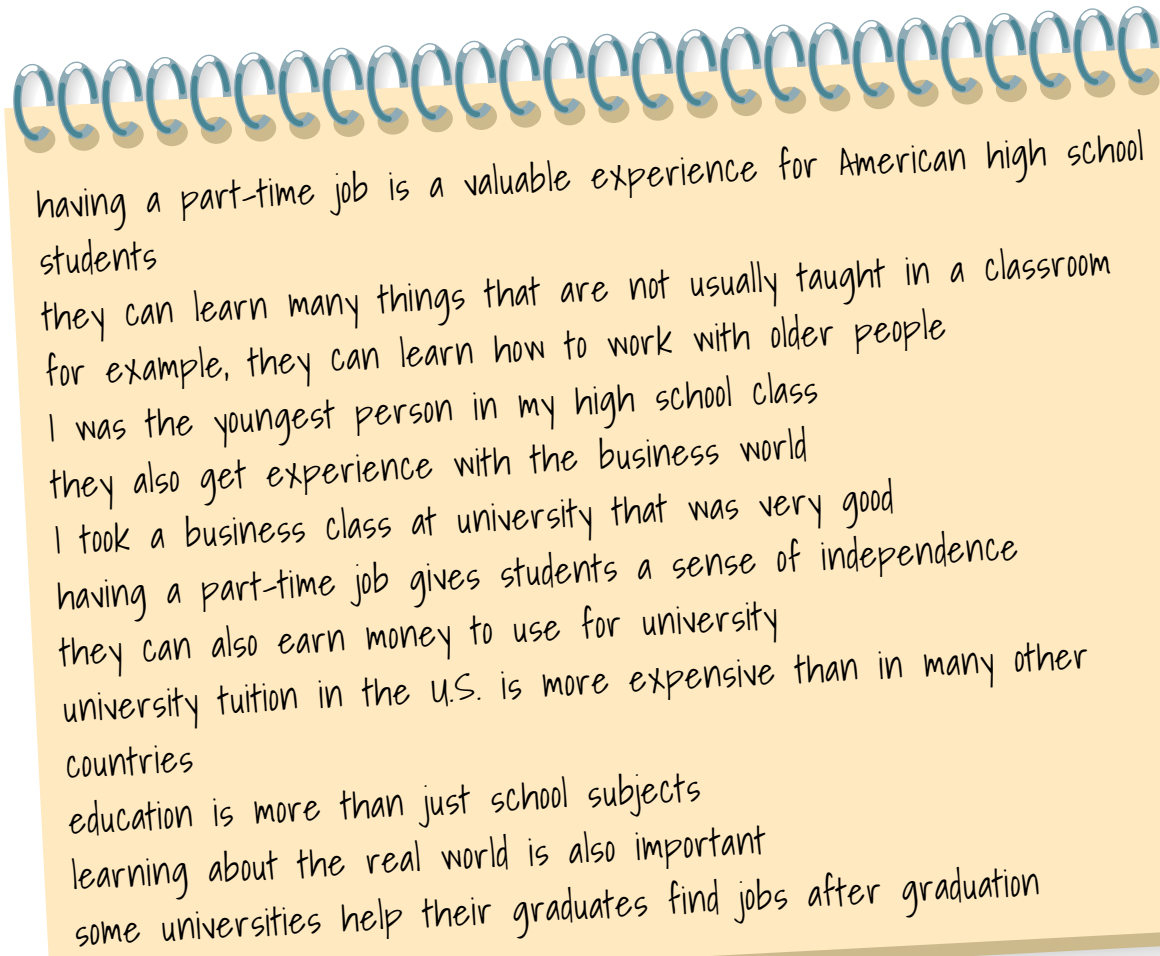 having a part-time job is a valuable experience for American high school
students
they can learn many things that are not usually taught in a classroom
for example, they can learn how to work with older people
I was the youngest person in my high school class
they also get experience with the business world
I took a business class at university that was very good
having a part-time job gives students a sense of independence
they can also earn money to use for university
university tuition in the U.S. is more expensive than in many other
countries
education is more than just school subjects
learning about the real world is also important
some universities help their graduates find jobs after graduation